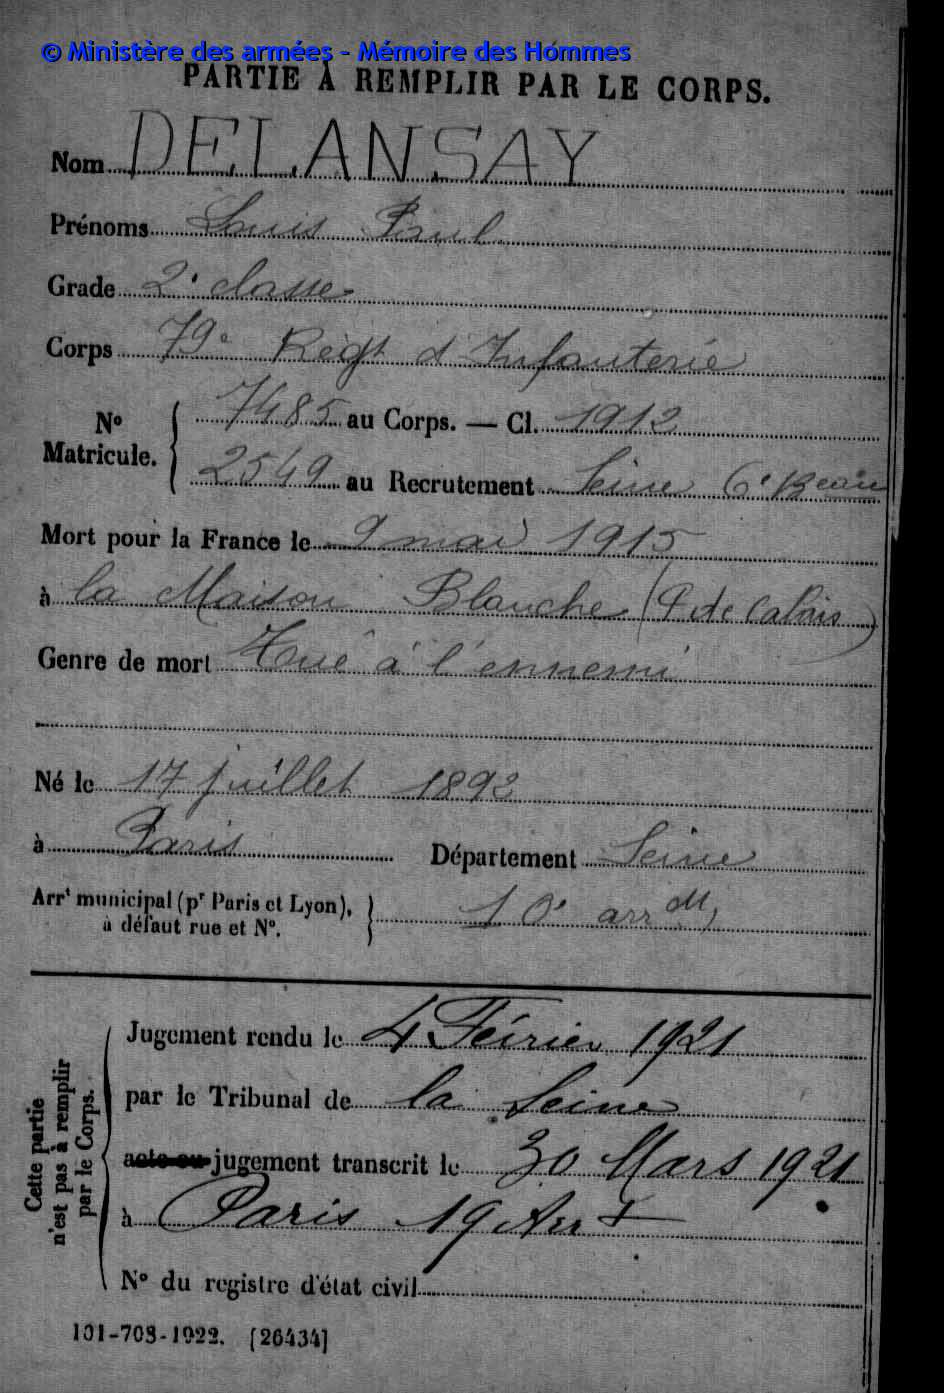 © Ministère des armées - Mémoire des Hommes
PARTIE À REMPLIR PAR LE CORPS.
Nom DELANSAY
Prénoms Louis Paul
Grade 2e classe
Corps 79e Régt d'Infanterie
No Matricule. { 7485 au Corps. — Cl. 1912
2549 au Recrutement Seine 6e Beau
Mort pour la France le 9 mai 1915
à la Maison Blanche (P. de Calais)
Genre de mort Tué à l'ennemi
Né le 17 juillet 1892
à Paris Département Seine
Arrt municipal (pr Paris et Lyon), à défaut rue et No. } 10e arrdt
Cette partie n'est pas à remplir par le Corps.
Jugement rendu le 4 Février 1921
par le Tribunal de la Seine
acte ou jugement transcrit le 30 Mars 1921
à Paris 19 Arrt
No du registre d'état civil
101-708-1922. [26434]